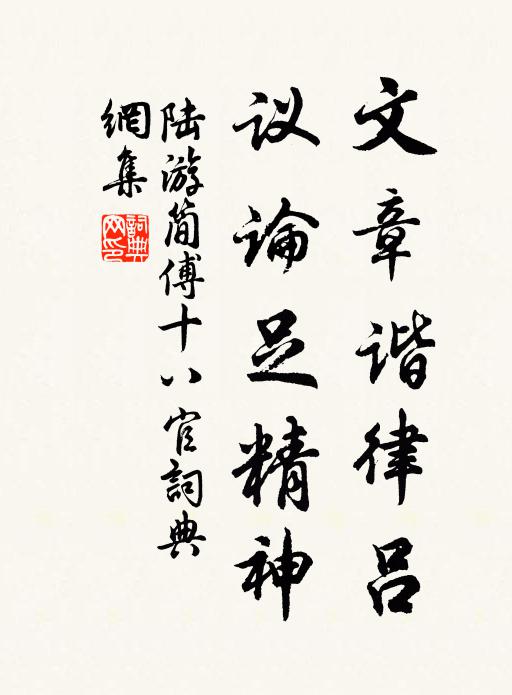 文章谐律吕
议论足精神
陆游简傅十八官詞典
網集
詞典网印